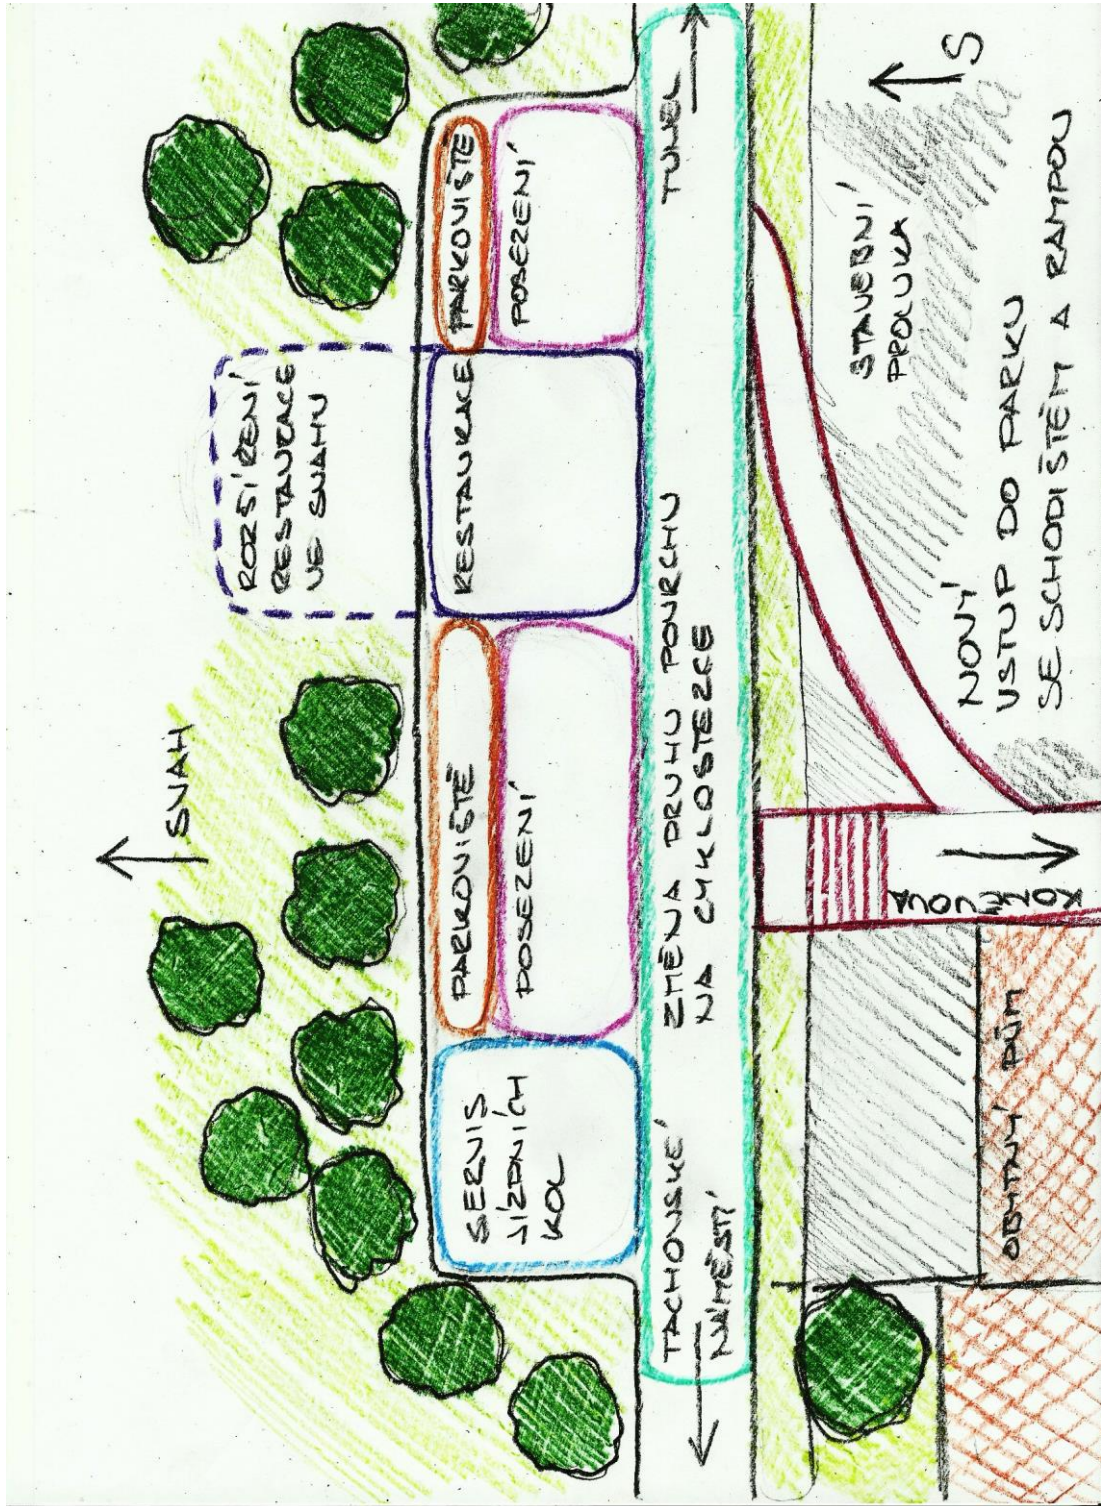 SVAH
ROZŠÍŘENÍ
RESTAURACE
VE SVAHU
SERVIS
JÍZDNÍCH
KOL
PARKOVIŠTĚ
POSEZENÍ
RESTAURACE
PARKOVIŠTĚ
POSEZENÍ
TACHOVSKÉ
NÁMĚSTÍ
ZMĚNA DRUHU POVRCHU
NA CYKLOSTEZCE
TUNEL
OBYTNÝ DŮM
KONĚVOVA
STAVEBNÍ
PROLUKA
S
NOVÝ
VSTUP DO PARKU
SE SCHODIŠTĚM A RAMPOU